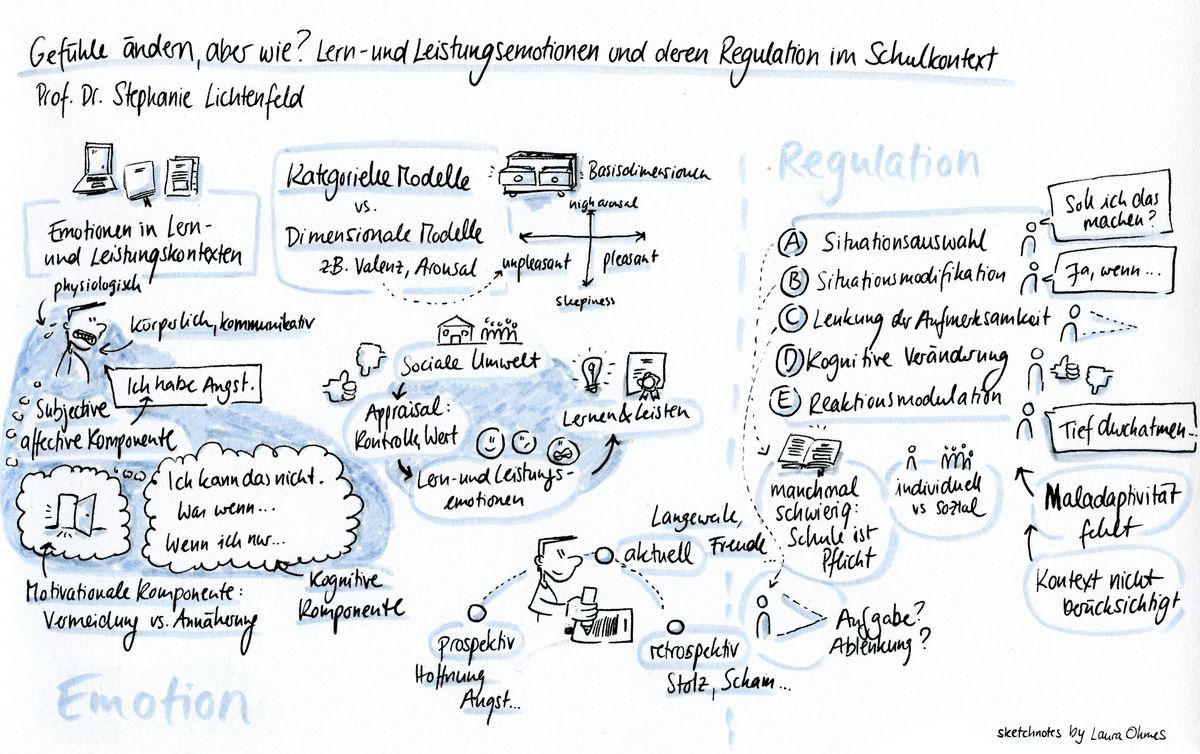 Gefühle ändern, aber wie? Lern- und Leistungsemotionen und deren Regulation im Schulkontext
Prof. Dr. Stephanie Lichtenfeld
Emotionen in Lern-
und Leistungskontexten
physiologisch
körperlich, kommunikativ
Ich habe Angst.
Subjective
affective Komponente
Ich kann das nicht.
Was wenn...
Wenn ich nur...
Motivationale Komponente:
Vermeidung vs. Annäherung
Kognitive
Komponente
Emotion
Kategoriale Modelle
vs.
Dimensionale Modelle
z.B. Valenz, Arousal
Basisdimensionen
high arousal
unpleasant
pleasant
sleepiness
Sociale Umwelt
Appraisal:
Kontrolle, Wert
Lern- und Leistungs-
emotionen
Lernen & Leisten
Langeweile,
Freude
aktuell
prospektiv
Hoffnung
Angst...
retrospektiv
Stolz, Scham...
Regulation
A Situationsauswahl
Soll ich das
machen?
B Situationsmodifikation
Ja, wenn...
C Lenkung der Aufmerksamkeit
D Kognitive Veränderung
E Reaktionsmodulation
Tief durchatmen...
manchmal
schwierig:
Schule ist
Pflicht
individuell
vs sozial
Maladaptivität
fehlt
Kontext nicht
berücksichtigt
Aufgabe?
Ablenkung?
sketchnotes by Laura Ohmes